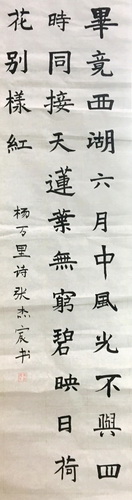 畢竟西湖六月中風光不與四
時同接天蓮葉無窮碧映日荷
花別樣紅
杨万里诗张杰宸书